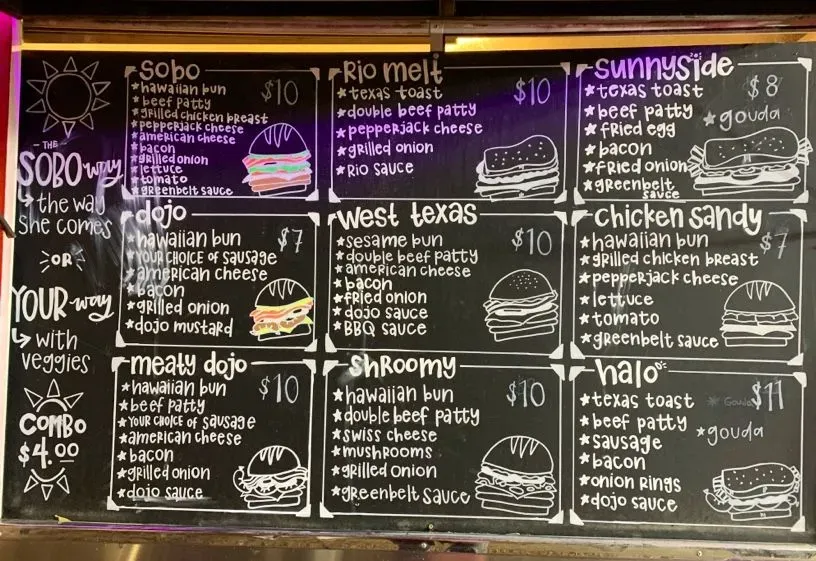 THE
SOBO way
the way
she comes
OR
YOUR way
with
veggies
COMBO
$4.00
SOBO
$10
*hawaiian bun
*beef patty
*grilled chicken breast
*pepperjack cheese
*american cheese
*bacon
*grilled onion
*lettuce
*tomato
*greenbelt sauce
RIO melt
$10
*texas toast
*double beef patty
*pepperjack cheese
*grilled onion
*RIO sauce
sunnyside
$8
*texas toast
*beef patty
*gouda
*fried egg
*bacon
*fried onion
*greenbelt
sauce
dojo
$7
*hawaiian bun
*YOUR CHOICE of sausage
*american cheese
*bacon
*grilled onion
*dojo mustard
west texas
$10
*sesame bun
*double beef patty
*american cheese
*bacon
*fried onion
*dojo sauce
*BBQ sauce
chicken sandy
$7
*hawaiian bun
*grilled chicken breast
*pepperjack cheese
*lettuce
*tomato
*greenbelt sauce
meaty dojo
$10
*hawaiian bun
*beef patty
*YOUR CHOICE of sausage
*american cheese
*bacon
*grilled onion
*dojo sauce
shroomy
$10
*hawaiian bun
*double beef patty
*swiss cheese
*mushrooms
*grilled onion
*greenbelt sauce
halo
$11
*texas toast
*Gouda
*beef patty
*gouda
*sausage
*bacon
*onion rings
*dojo sauce